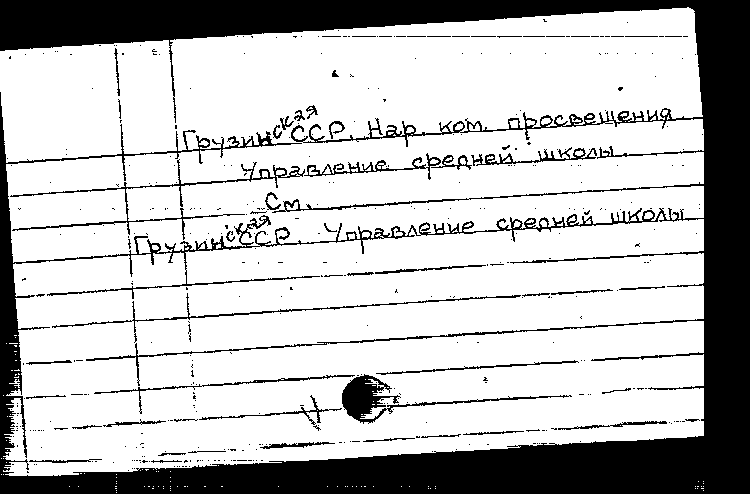 Грузинская ССР. Нар. ком. просвещения.
Управление средней школы.
См.
Грузинская ССР. Управление средней школы